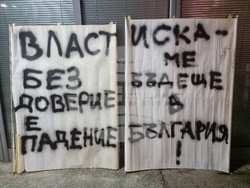 ВЛАСТ
БЕЗ
ДОВЕРИЕ
Е
ПАДЕНИЕ
ИСКА-
МЕ
БЪДЕЩЕ
В
БЪЛГАРИЯ
!